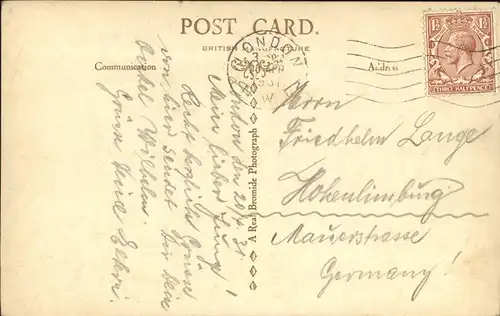 POST CARD.
BRITISH MANUFACTURE
Communication
Address
LONDON
1931
W
1½ 1½
THREE HALFPENCE
A Real Bromide Photograph
London den 20/4. 31.
Mein lieber Jung!
Recht herzliche Grüsse
von hier sendet Dir Dein
Onkel Wilhelm.
Grüsse Deine Eltern.
Herrn
Friedhelm Lange
Hohenlimburg
Mauerstrasse
Germany!